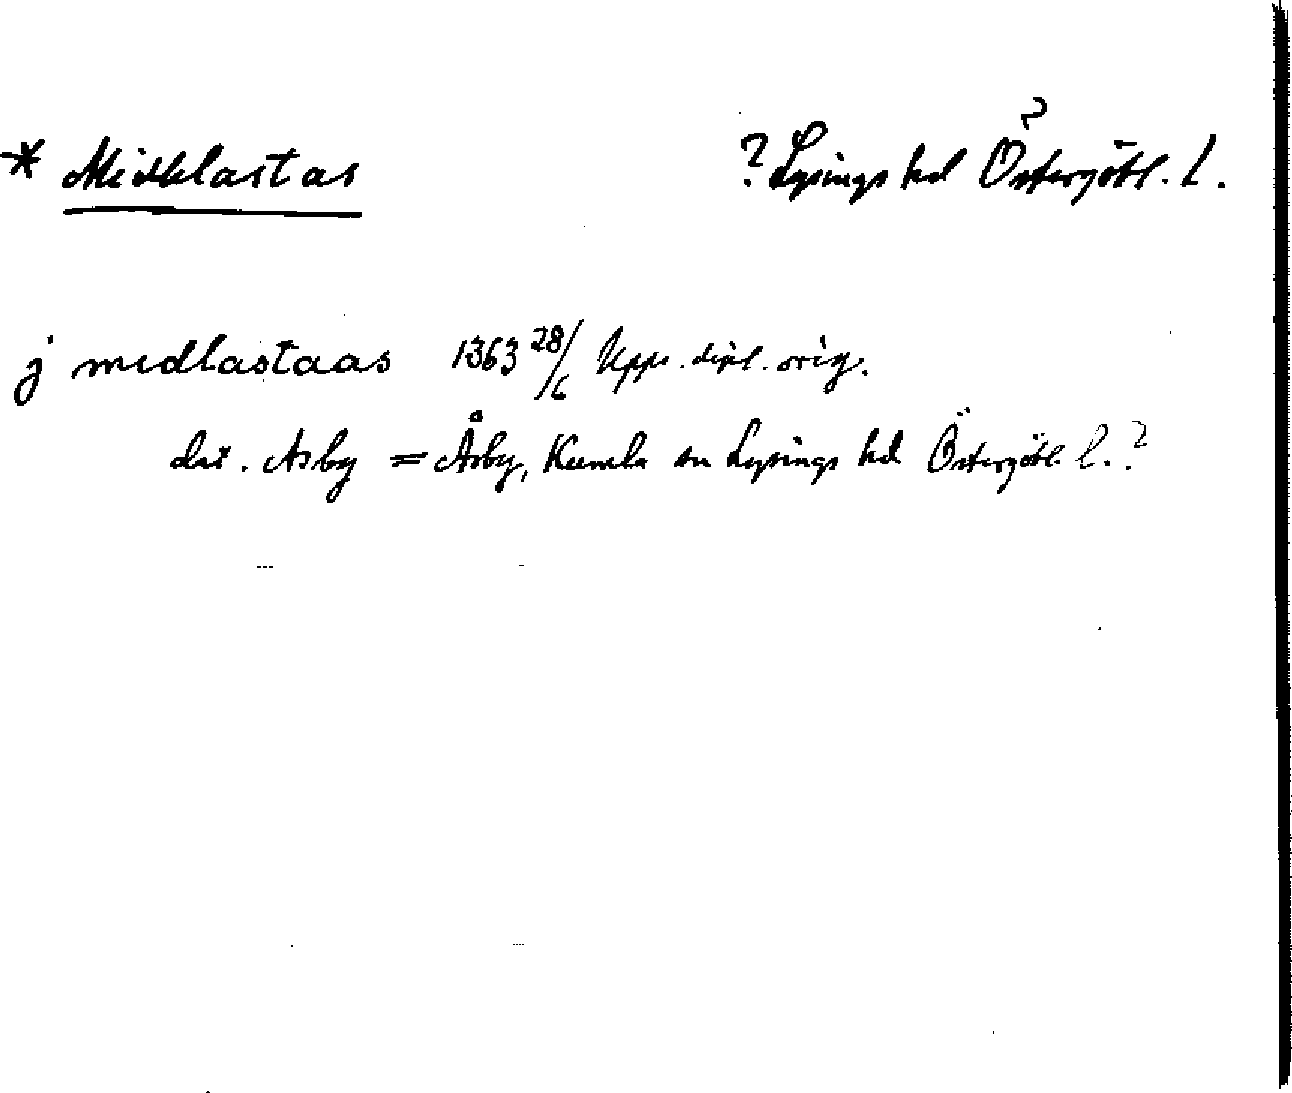 * Midklastas ? Lysings hd Östergötl. l. ?
j medlastaas 1363 28/6 Upps. dipl. orig.
dat. Asby = Åsby, Kumla sn Lysings hd Östergötl. l. ?